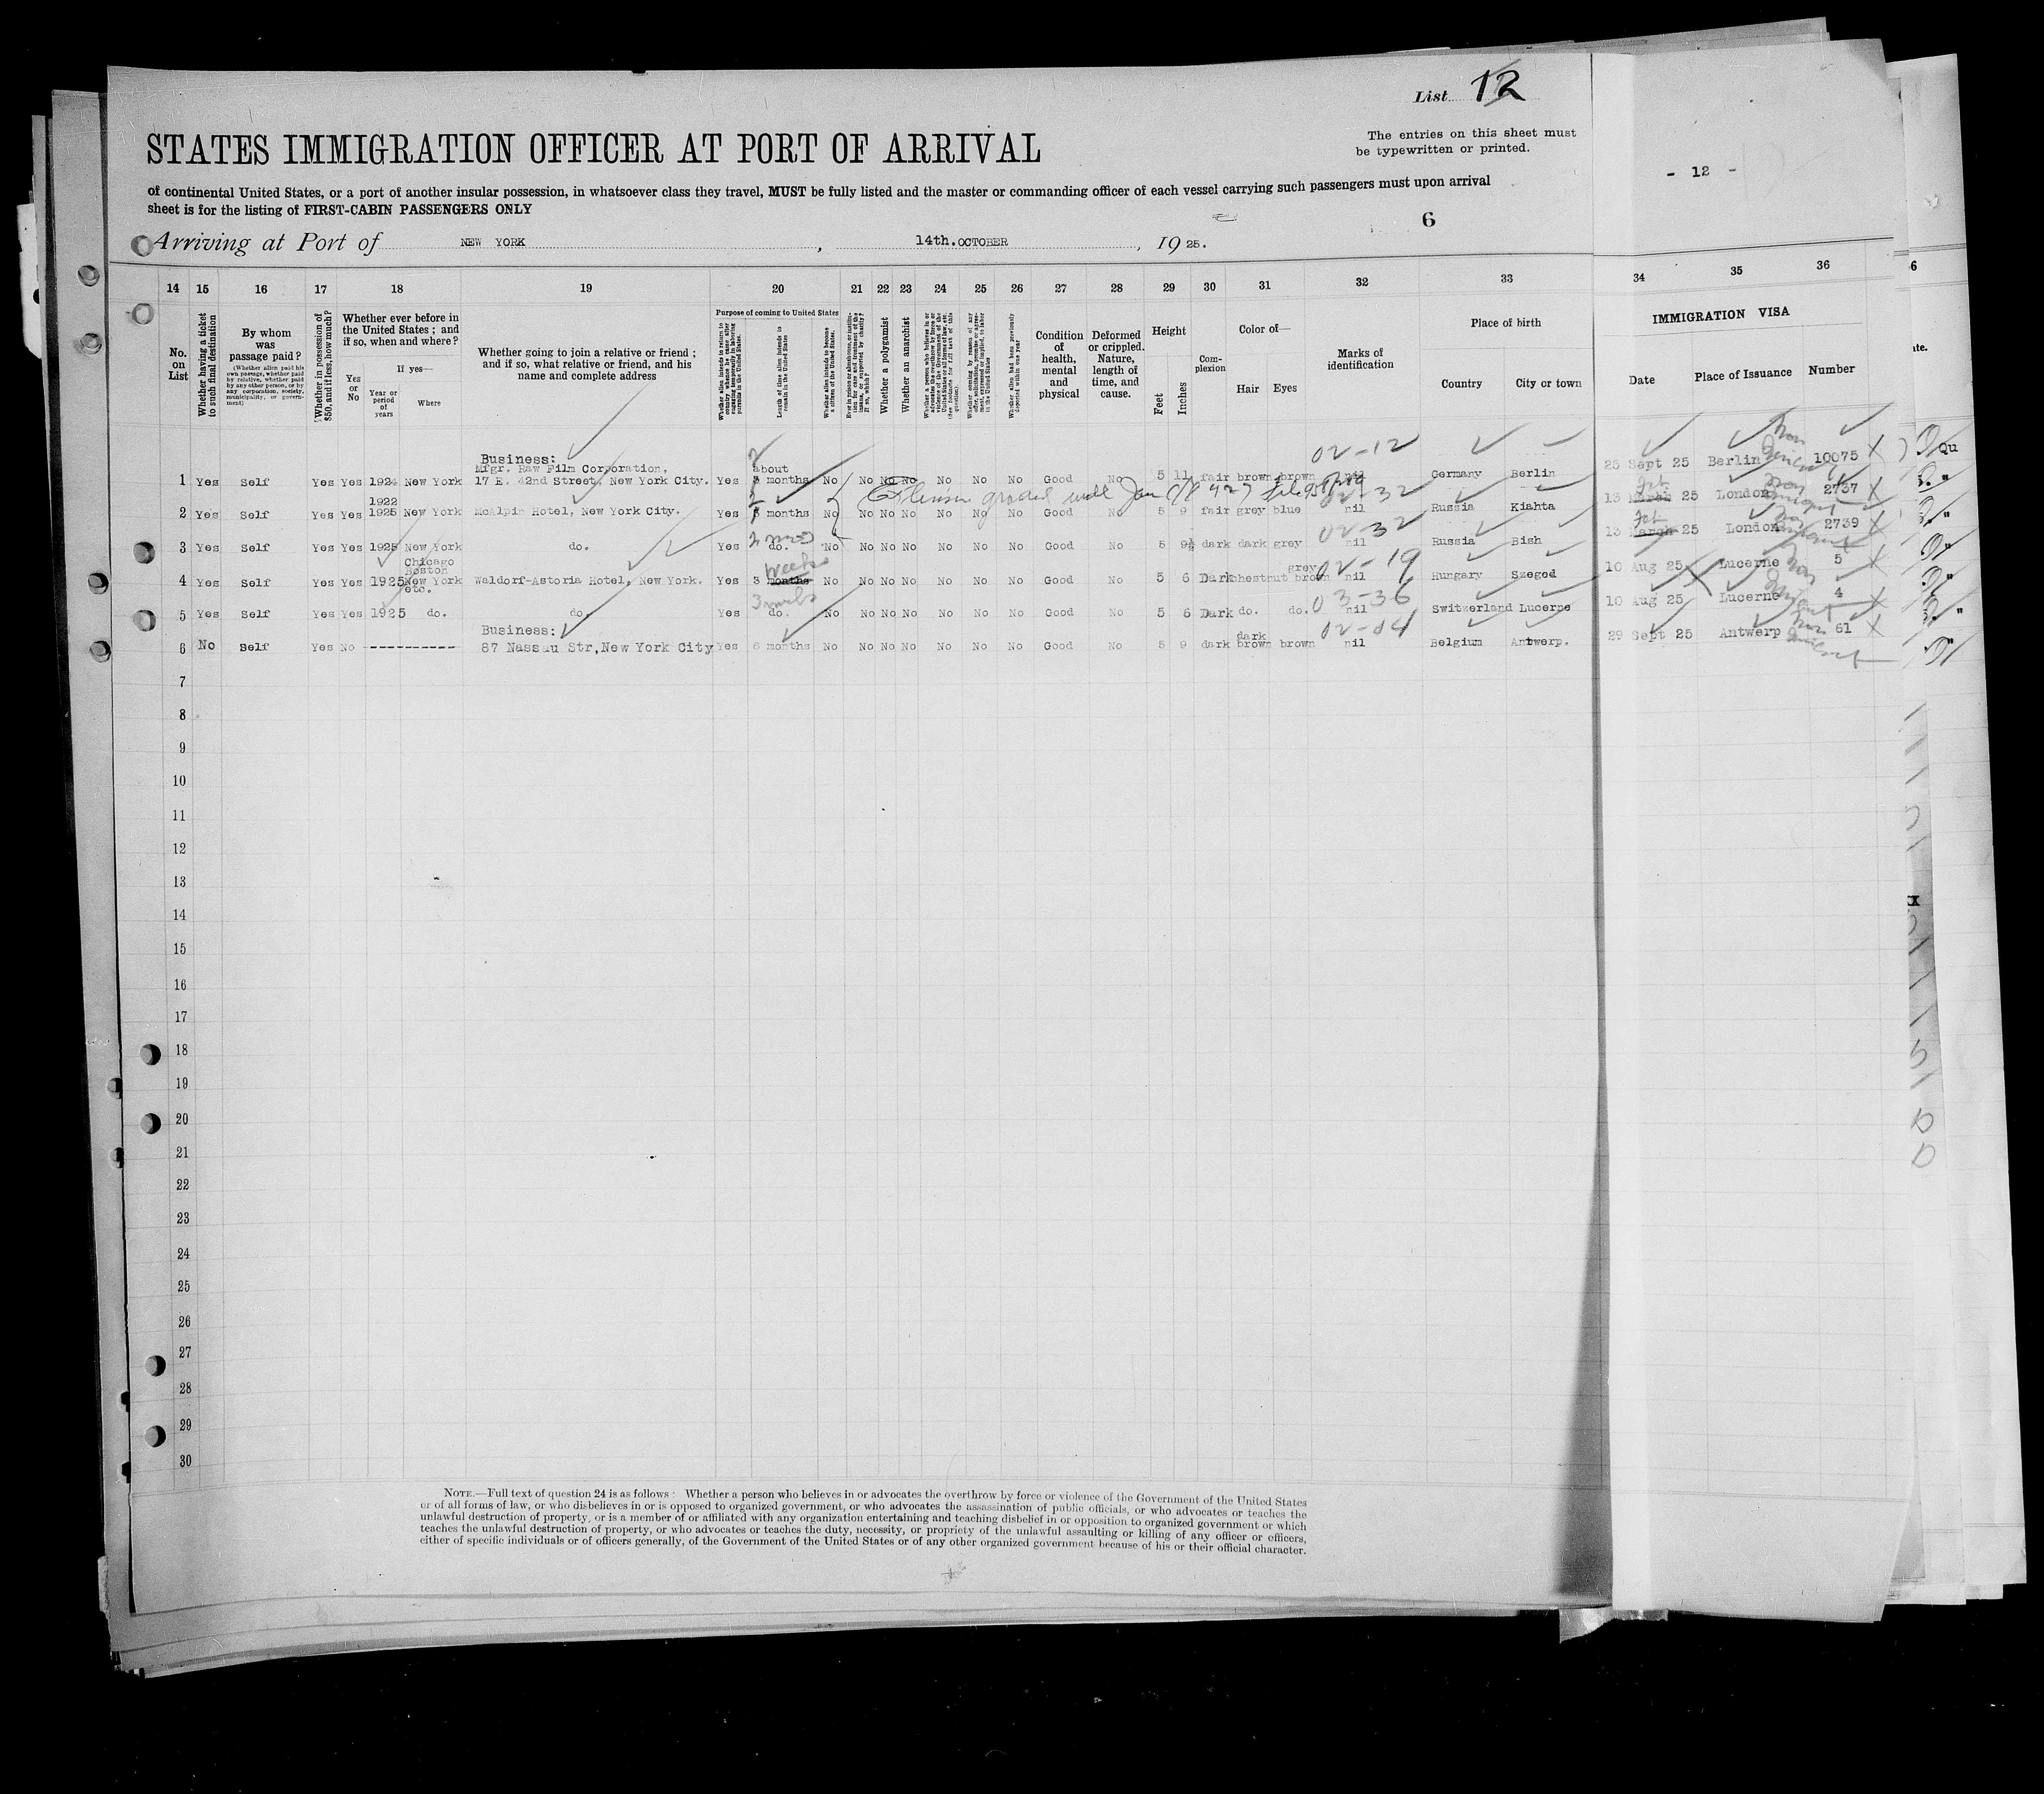 List 12
STATES IMMIGRATION OFFICER AT PORT OF ARRIVAL
The entries on this sheet must
be typewritten or printed.
- 12 -
of continental United States, or a port of another insular possession, in whatsoever class they travel, MUST be fully listed and the master or commanding officer of each vessel carrying such passengers must upon arrival
sheet is for the listing of FIRST-CABIN PASSENGERS ONLY
6
Arriving at Port of NEW YORK, 14th. OCTOBER, 1925.
14 15 16 17 18 19 20 21 22 23 24 25 26 27 28 29 30 31 32 33 34 35 36
No. on List
Whether having a ticket to such final destination
By whom was passage paid?
(Whether alien paid his own passage, whether paid by relative, whether paid by any other person, or by any corporation, society, municipality, or government)
Whether in possession of $50, and if less, how much?
Whether ever before in the United States; and if so, when and where?
Yes or No
If yes—
Year or period of years
Where
Whether going to join a relative or friend; and if so, what relative or friend, and his name and complete address
Purpose of coming to United States
Whether alien intends to return to country whence he came after engaging temporarily in laboring pursuits in the United States.
Length of time alien intends to remain in the United States
Whether alien intends to become a citizen of the United States.
Ever in prison or almshouse, or institution for care and treatment of the insane, or supported by charity? If so, which?
Whether a polygamist
Whether an anarchist
Whether alien had been previously deported within one year
Condition of health, mental and physical
Deformed or crippled. Nature, length of time, and cause.
Height
Feet
Inches
Complexion
Color of—
Hair
Eyes
Marks of identification
Place of birth
Country
City or town
IMMIGRATION VISA
Date
Place of Issuance
Number
02-12
Business:
Mfgr. Raw Film Corporation,
1 Yes Self Yes Yes 1924 New York 17 E. 42nd Street, New York City. Yes about months No No No No No No No Good No 5 11 fair brown brown nil Germany Berlin 25 Sept 25 Berlin 10075
02-32
2 Yes Self Yes Yes 1922 1925 New York McAlpin Hotel, New York City. Yes months No No No No No No No Good No 5 9 fair grey blue nil Russia Kiahta 13 March 25 London 2737
02-32
3 Yes Self Yes Yes 1925 New York do. Yes do. No No No No No No No Good No 5 9½ dark dark grey nil Russia Bish 13 March 25 London 2739
02-19
4 Yes Self Yes Yes 1925 Chicago Boston New York etc. Waldorf-Astoria Hotel, New York. Yes 3 months weeks No No No No No No No Good No 5 6 Dark chestnut grey brown nil Hungary Szeged 10 Aug 25 Lucerne 5
03-36
5 Yes Self Yes Yes 1925 do. do. Yes do. No No No No No No No Good No 5 6 Dark do. do. nil Switzerland Lucerne 10 Aug 25 Lucerne 4
02-04
Business:
6 No Self Yes No ----------- 87 Nassau Str, New York City Yes 6 months No No No No No No No Good No 5 9 dark dark brown brown nil Belgium Antwerp. 29 Sept 25 Antwerp 61
7
8
9
10
11
12
13
14
15
16
17
18
19
20
21
22
23
24
25
26
27
28
29
30
NOTE.—Full text of question 24 is as follows: Whether a person who believes in or advocates the overthrow by force or violence of the Government of the United States
or of all forms of law, or who disbelieves in or is opposed to organized government, or who advocates the assassination of public officials, or who advocates or teaches the
unlawful destruction of property, or is a member of or affiliated with any organization entertaining and teaching disbelief in or opposition to organized government or which
teaches the unlawful destruction of property, or who advocates or teaches the duty, necessity, or propriety of the unlawful assaulting or killing of any officer or officers,
either of specific individuals or of officers generally, of the Government of the United States or of any other organized government because of his or their official character.